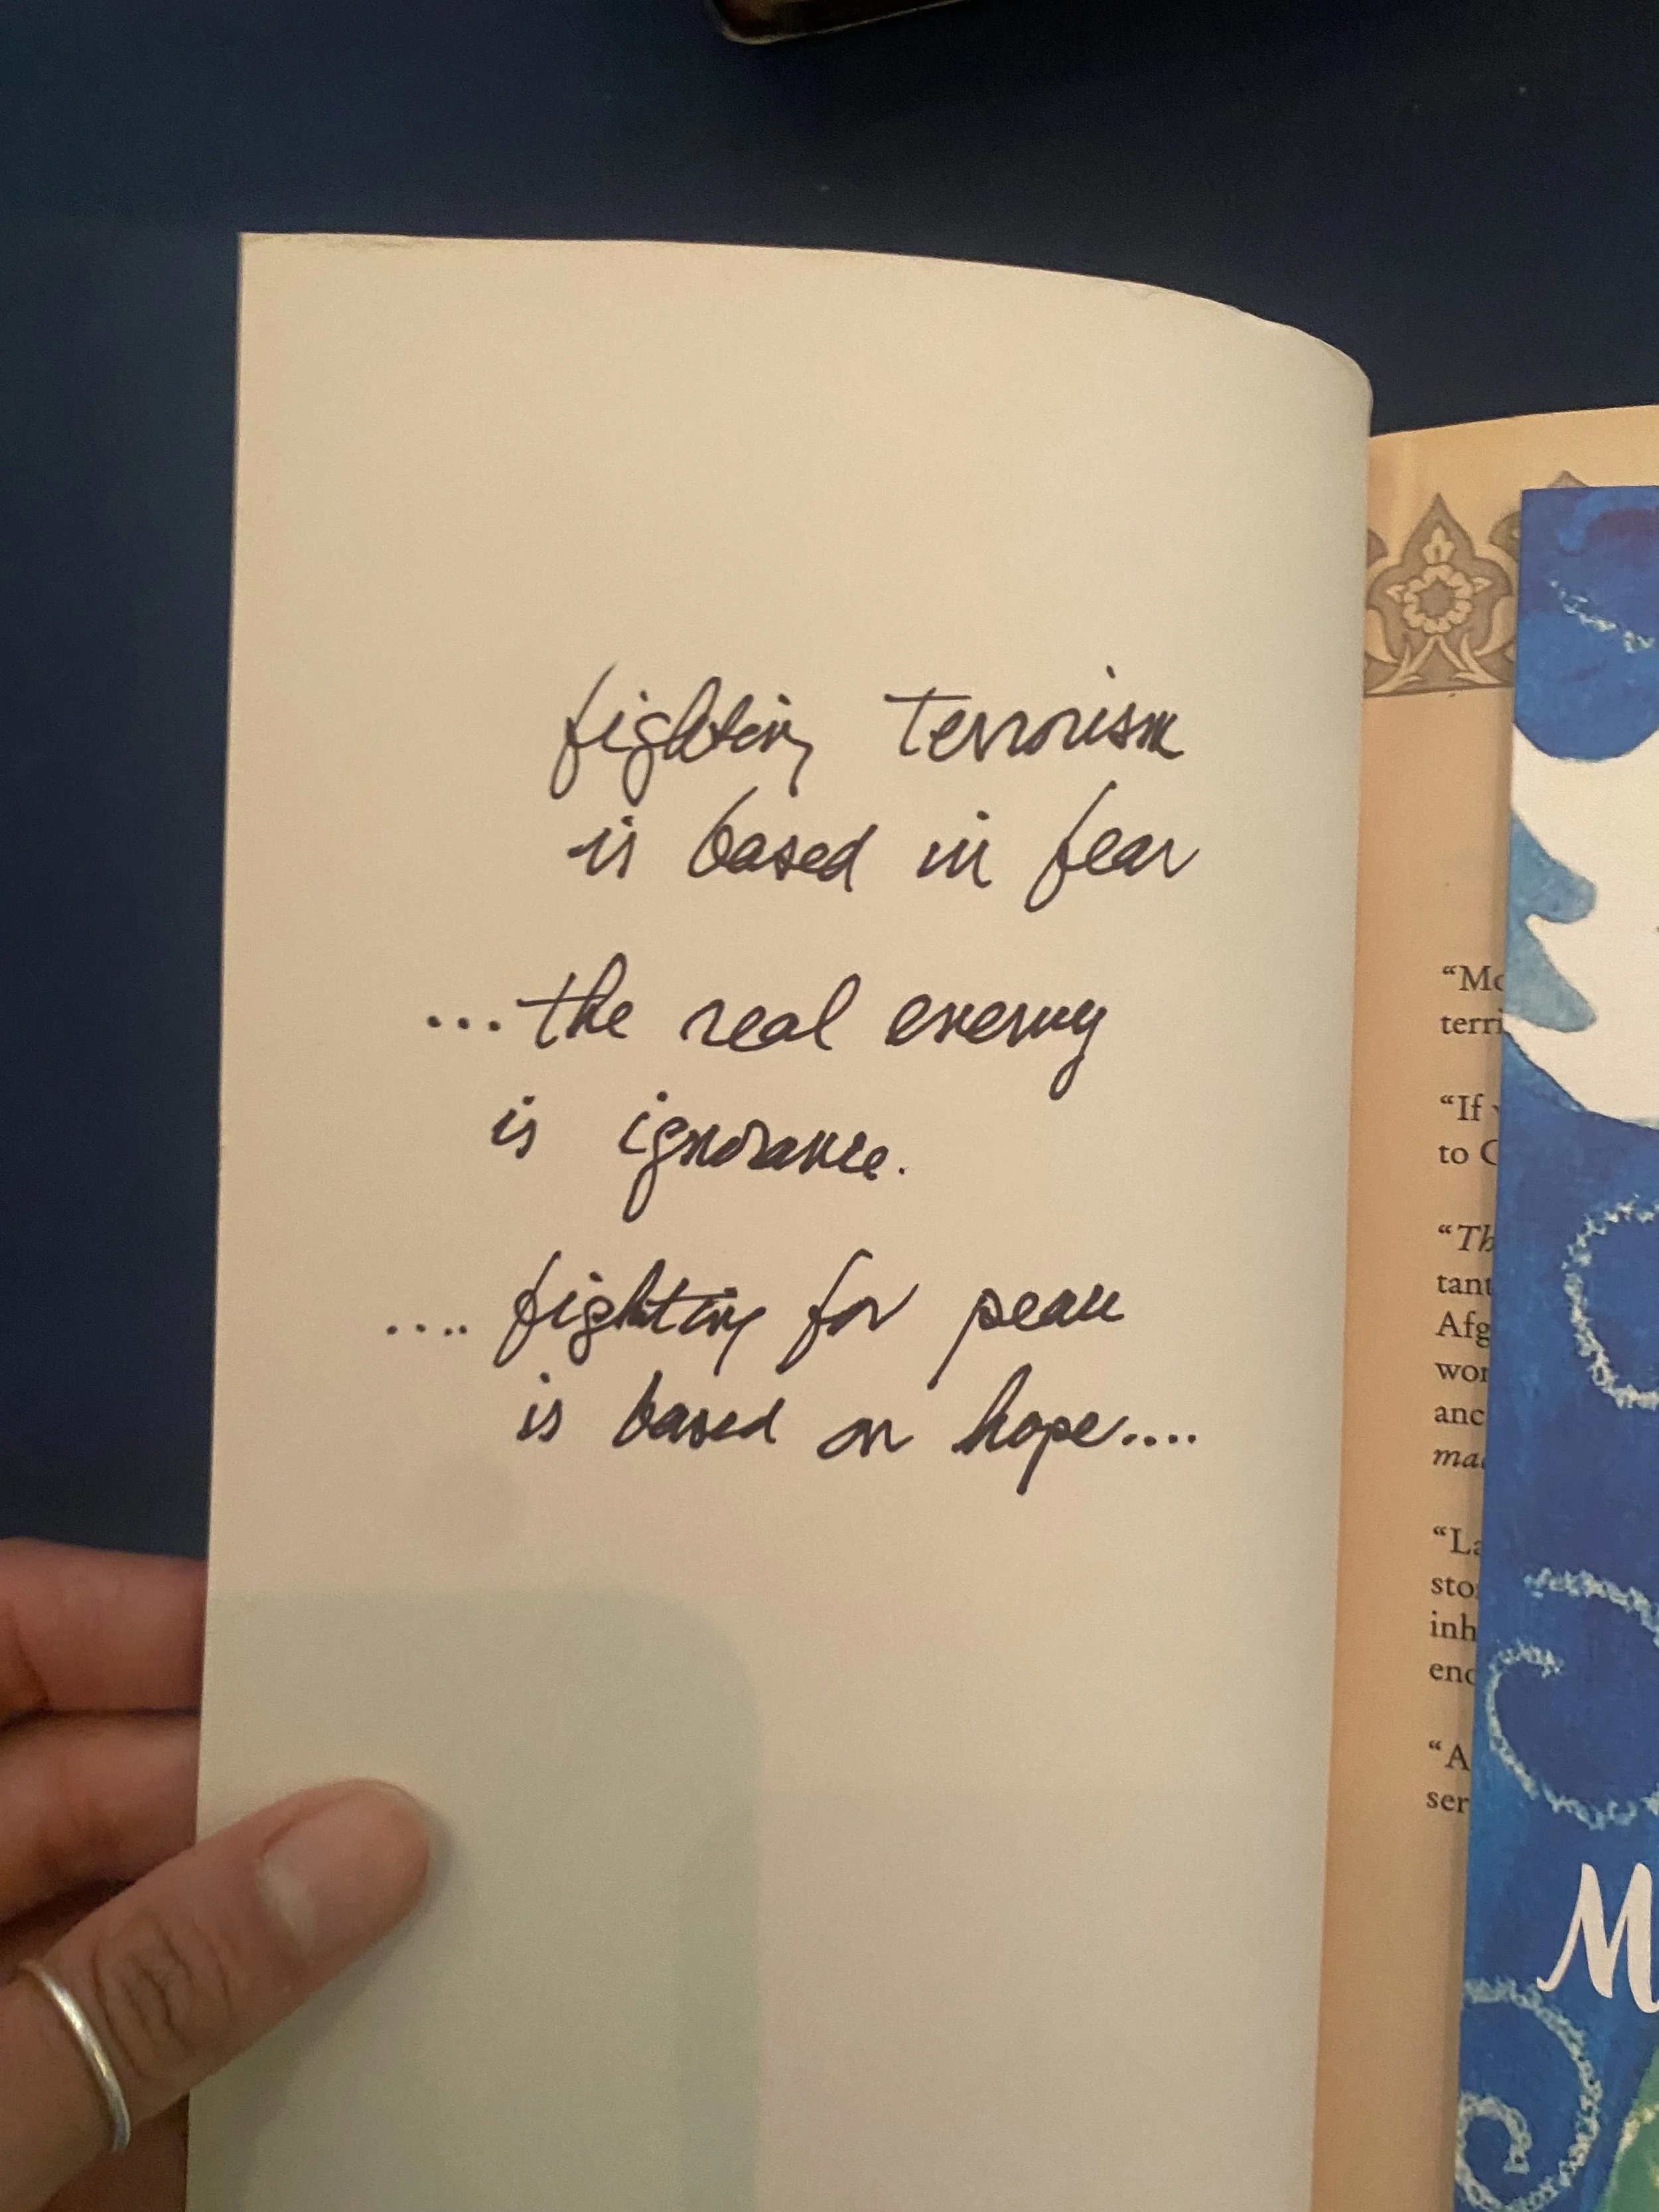 fighting terrorism
is based in fear
...the real enemy
is ignorance.
.... fighting for peace
is based on hope....
“Mo
terri
“If
to C
“Th
tant
Afg
wor
anc
ma
“La
sto
inh
enc
“A
ser
M